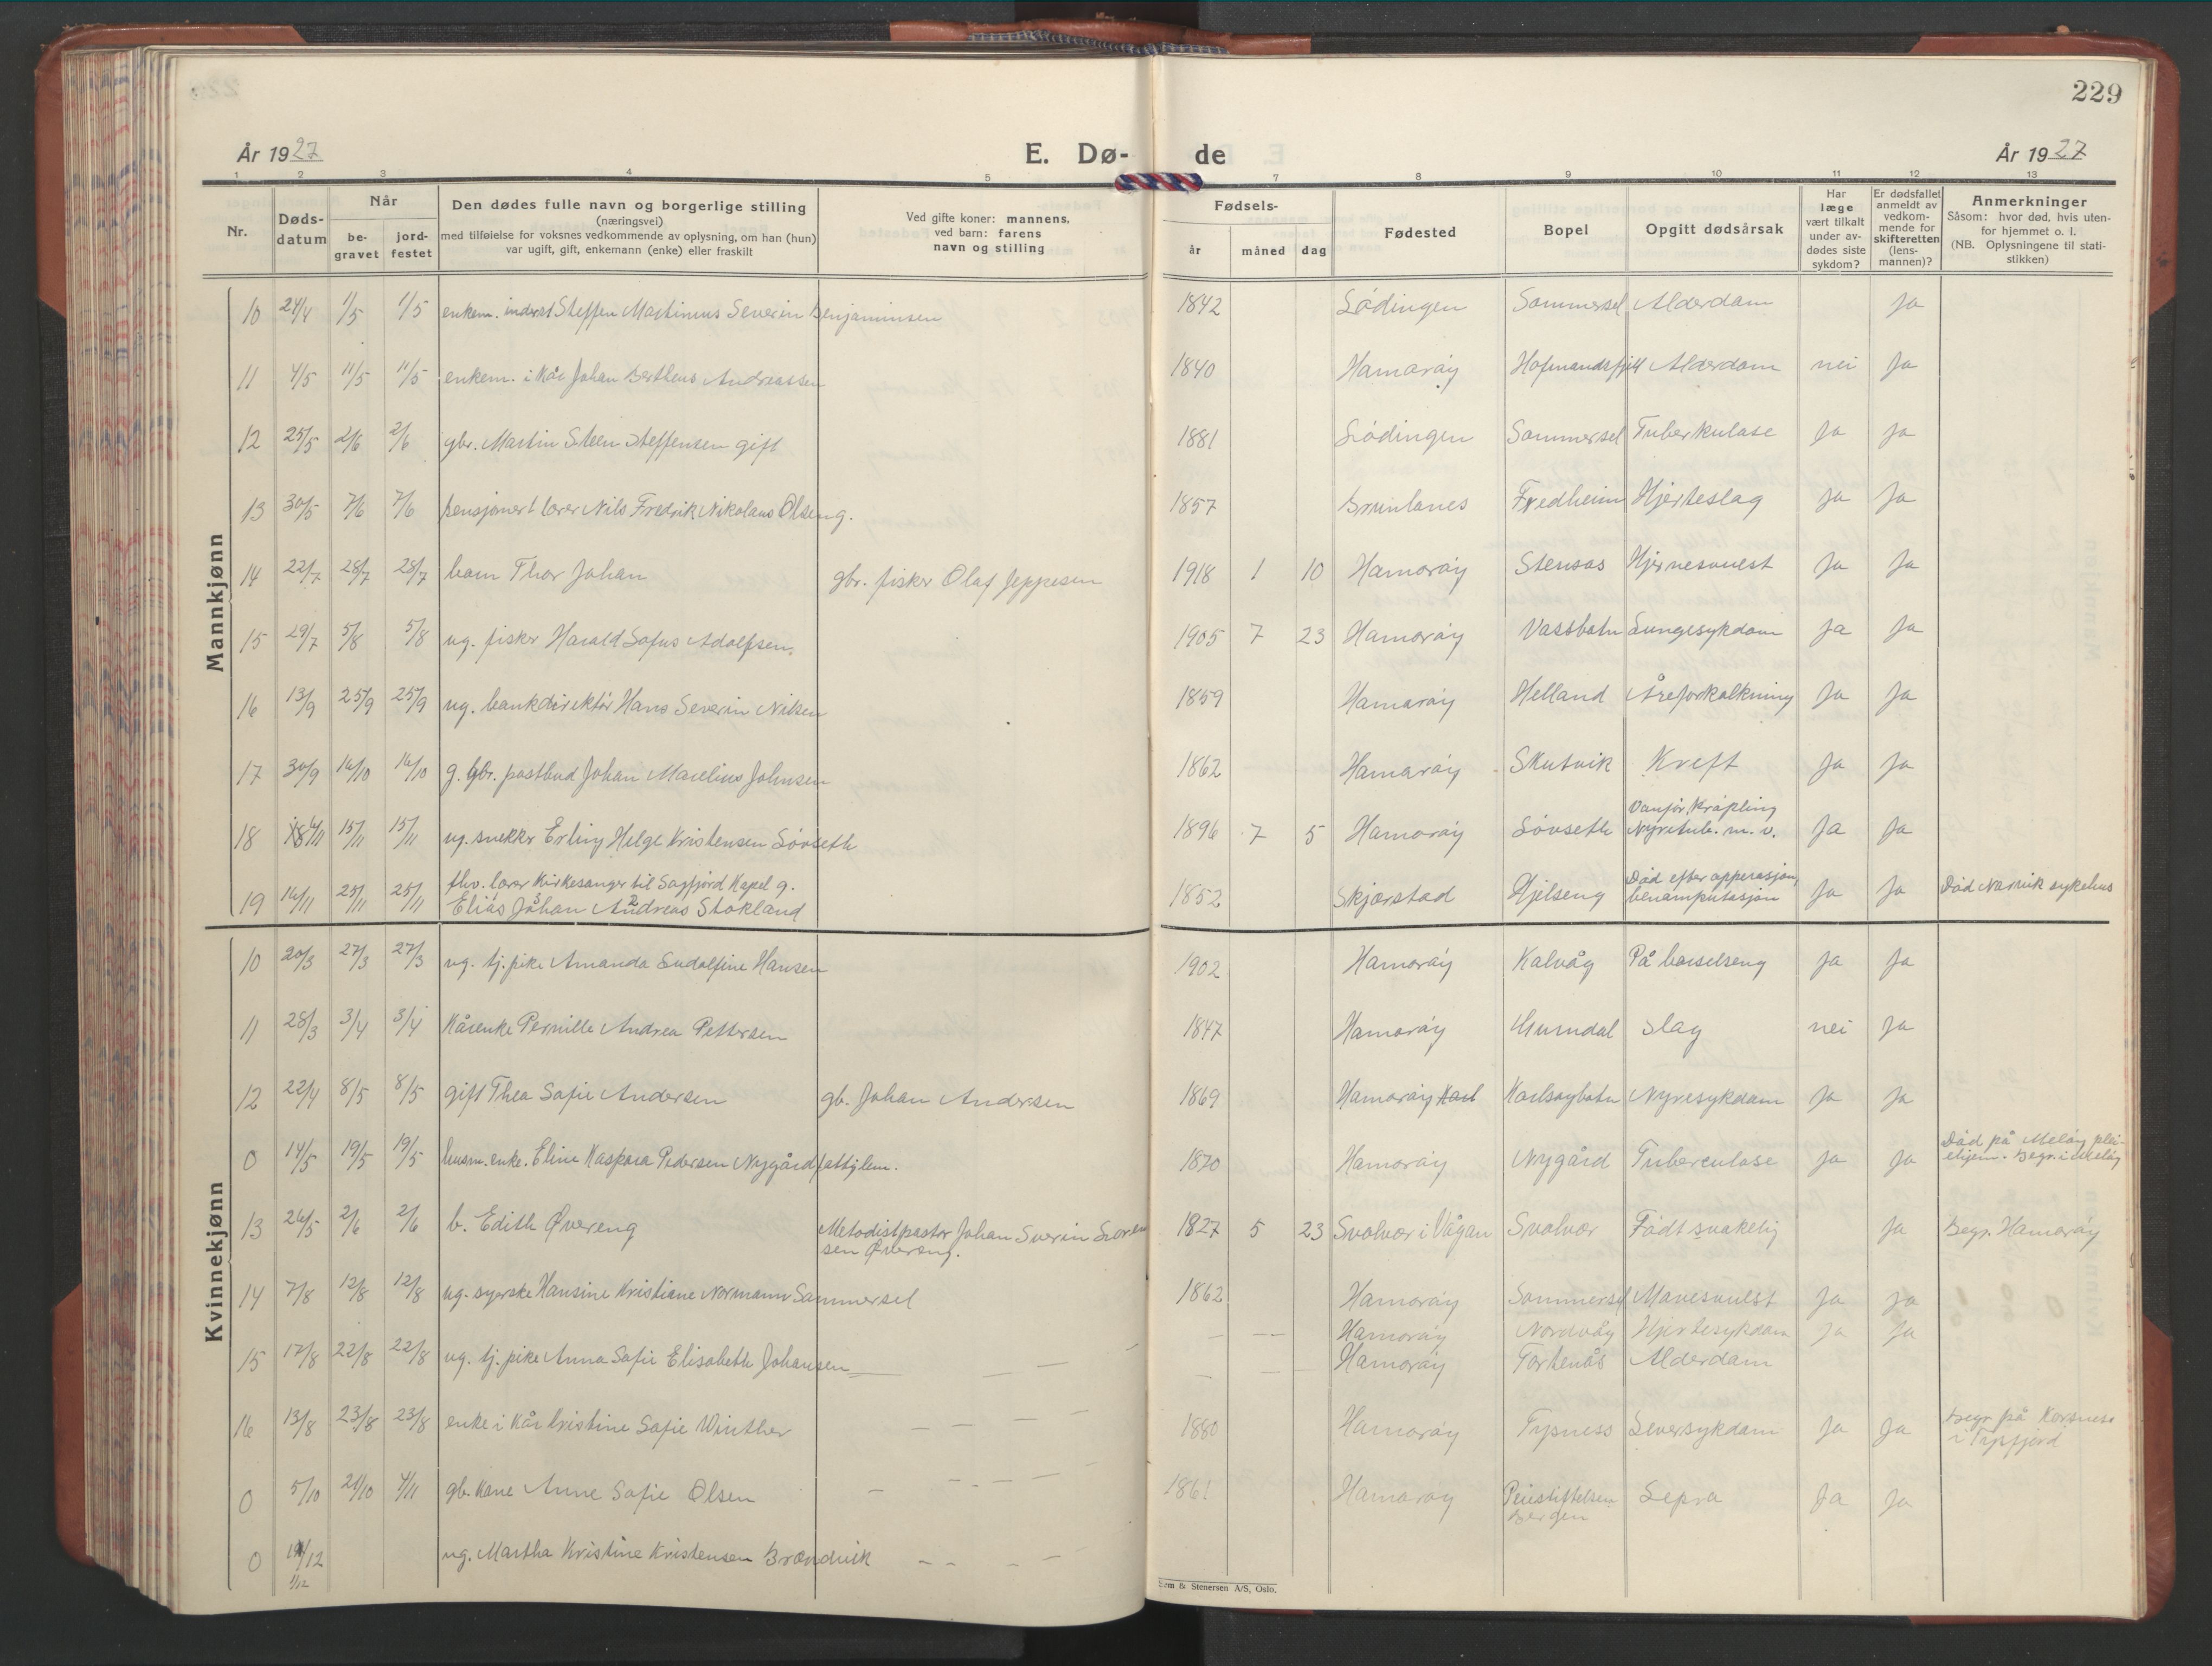 229
År 1927
E. Dø-
de
År 1927
1 2 3 4 5 7 8 9 10 11 12 13
Nr.
Døds-
datum
Når
be-
gravet
jord-
festet
Den dødes fulle navn og borgerlige stilling
(næringsvei)
med tilføielse for voksnes vedkommende av oplysning, om han (hun)
var ugift, gift, enkemann (enke) eller fraskilt
Ved gifte koner: mannens,
ved barn: farens
navn og stilling
Fødsels-
år måned dag
Fødested
Bopel
Opgitt dødsårsak
Har
læge
vært tilkalt
under av-
dødes siste
sykdom?
Er dødsfallet
anmeldt av
vedkom-
mende for
skifteretten
(lens-
mannen)?
Anmerkninger
Såsom: hvor død, hvis uten-
for hjemmet o. l.
(NB. Oplysningene til stati-
stikken)
Mannkjønn
10 24/4 1/5 1/5 enkem. inderst Steffen Martinus Severin Benjaminsen 1842 Lødingen Sommersel Alderdom Ja
11 4/5 11/5 11/5 enkem. i kår Johan Bertheus Andreassen 1840 Hamarøy Hofmandsfjell Alderdom nei Ja
12 25/5 2/6 2/6 gbr. Martin Steen Steffensen gift 1881 Lødingen Sommersel Tuberkulose Ja Ja
13 30/5 7/6 7/6 pensjonert lærer Nils Fredrik Nikolaus Olsen g. 1857 Brunlanes Fredheim Hjerteslag Ja Ja
14 22/7 28/7 28/7 barn Thor Johan gbr. fisker Olaf Jeppesen 1918 1 10 Hamarøy Stensås Hjernesvulst Ja Ja
15 29/7 5/8 5/8 ug. fisker Harald Sofus Adolfsen. 1905 7 23 Hamarøy Vassbotn Lungesykdom Ja Ja
16 13/9 25/9 25/9 ug. bankdirektør Hans Severin Nilsen 1859 Hamarøy Helland Åreforkalkning Ja Ja
17 30/9 16/10 16/10 g. gbr. postbud Johan Marelius Johnsen 1862 Hamarøy Skutvik Kreft Ja Ja
18 6/11 15/11 15/11 ug. snekker Erling Helge Kristensen Løvseth 1896 7 5 Hamarøy Løvseth Vanfør, Krøpling
Nyretub. m. v. Ja Ja
19 16/11 25/11 25/11 fhv. lærer Kirkesanger til Sagfjord Kapel g.
Elias Johan Andreas Stokland 1852 Skjerstad Hjelseng Død efter opperasjon,
benamputasjon Ja Ja Død Narvik sykehus
Kvinnekjønn
10 20/3 27/3 27/3 ug. tj. pike Amanda Ludolfine Hansen 1902 Hamarøy Kalvåg På barselseng Ja Ja
11 28/3 3/4 3/4 Kårenke Pernille Andrea Pettersen 1847 Hamarøy Hurndal Slag nei Ja
12 22/4 8/5 8/5 gift Thea Sofie Andersen gb. Johan Andersen 1869 Hamarøy Karlsøybotn Nyresykdom Ja Ja
0 14/5 19/5 19/5 husm. enke. Eline Kaspara Pedersen Nygård fattiglem. 1870 Hamarøy Nygård Tuberculose Ja Ja Død på Meløy plei-
ehjem. Begr. i Meløy
13 26/5 2/6 2/6 b. Edith Øvereng Metodistpastor Johan Severin Soren
sen Øvereng. 1827 5 23 Svolvær i Vågan Svolvær Født svakelig Ja Begr. Hamarøy
14 7/8 12/8 12/8 ug. syerske Hansine Kristiane Normann Sommersel 1862 Hamarøy Sommersel Mavesvulst Ja Ja
Hamarøy Nordvåg Hjertesykdom Ja Ja
15 17/8 22/8 22/8 ug. tj. pike Anna Sofie Elisabeth Johansen Hamarøy Tortenås Alderdom
16 13/8 23/8 23/8 enke i kår Kristine Sofie Winther 1880 Hamarøy Tysness Leversykdom Ja Ja Begr. på Korsness
i Tysfjord
0 5/10 24/10 4/11 gb. kone Anne Sofie Olsen 1861 Hamarøy Pleiestiftelsen
Bergen Lepra Ja Ja
0 /12 ug. Martha Kristine Kristensen Brændvik
1/12
& Stenersen A/S, Oslo.